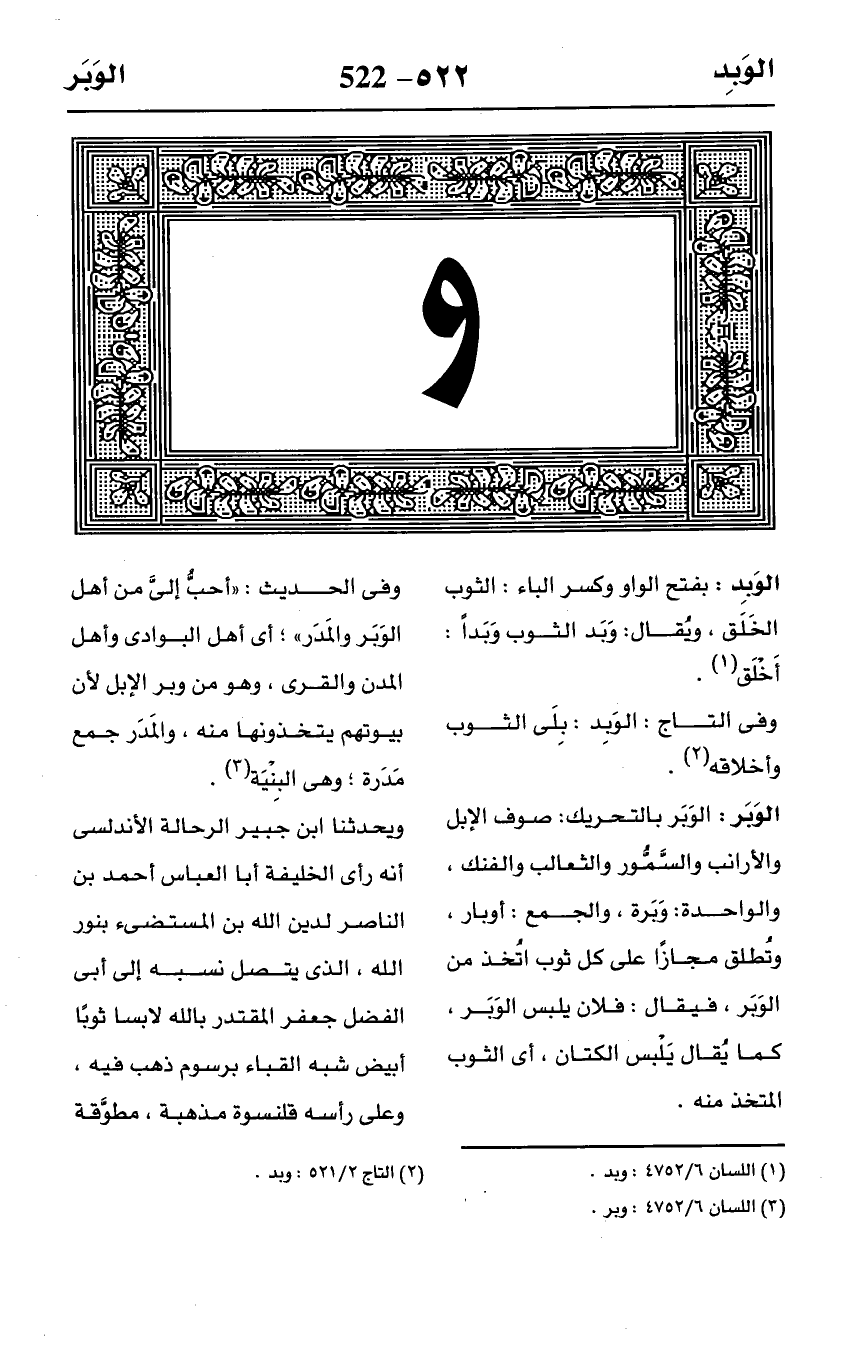 الوَبِد
٥٢٢ – 522
الوَبَر
و
الوَبِد : بفتح الواو وكسر الباء : الثوب
الخَلَق ، ويُقـــال: وَبَد الثـــوب وَبَداً :
أَخْلَق(١) .
وفى التـــاج : الوَبِد : بِلَى الثـــوب
وأخلاقه(٢) .
الوَبَر : الوَبَر بالتحريك: صوف الإبل
والأرانب والسَّمُّور والثعالب والفنك ،
والواحـــدة: وَبَرة ، والجـــمع : أوبار ،
وتُطلق مجازًا على كل ثوب اتُخذ من
الوَبَر ، فيقال : فلان يلبس الوَبَـر ،
كما يُقال يَلْبس الكتان ، أى الثوب
المتخذ منه .
وفى الحـــديث : «أحبُّ إلىَّ من أهل
الوَبَر والمَدَر» ؛ أى أهل البوادى وأهل
المدن والقـرى ، وهو من وبر الإبل لأن
بيوتهم يتخذونها منه ، والمَدَر جمع
مَدَرة ؛ وهى البِنْيَة(٣) .
ويحدثنا ابن جبير الرحالة الأندلسى
أنه رأى الخليفة أبا العباس أحمد بن
الناصر لدين الله بن المستضىء بنور
الله ، الذى يتصل نسبـــه إلى أبى
الفضل جعفر المقتدر بالله لابسا ثوبًا
أبيض شبه القباء برسوم ذهب فيه ،
وعلى رأسه قلنسوة مذهبة ، مطوَّقة
(١) اللسان ٤٧٥٢/٦ : وبد .
(٢) التاج ٥٢١/٢ : وبد .
(٣) اللسان ٤٧٥٢/٦ : وبر .